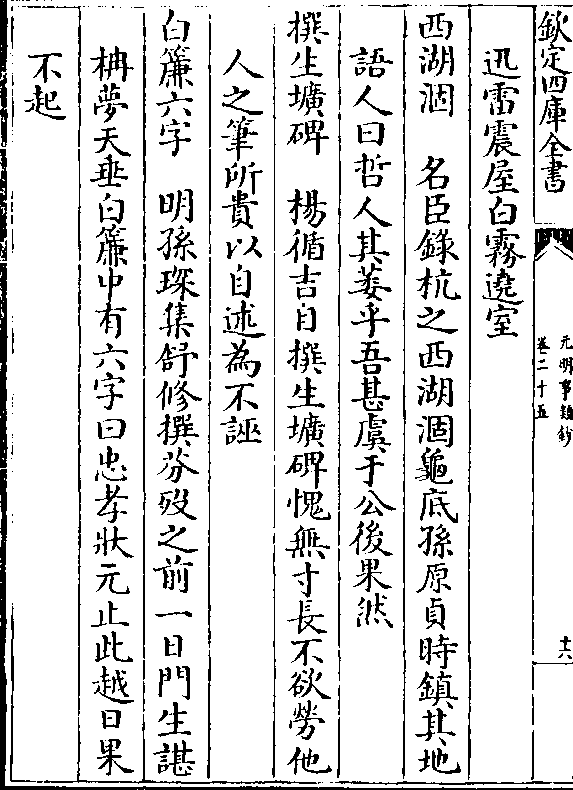 欽定四庫全書
元明事類鈔
卷二十五
十六
迅雷震屋白霧遶室
西湖涸　名臣錄杭之西湖涸龜底孫原貞時鎮其地
語人曰哲人其萎乎吾甚虞于公後果然
撰生壙碑　楊循吉自撰生壙碑愧無寸長不欲勞他
人之筆所貴以自述為不誣
白簾六字　明孫琛集舒修撰芬歿之前一日門生諶
枏夢天垂白簾中有六字曰忠孝狀元止此越日果
不起